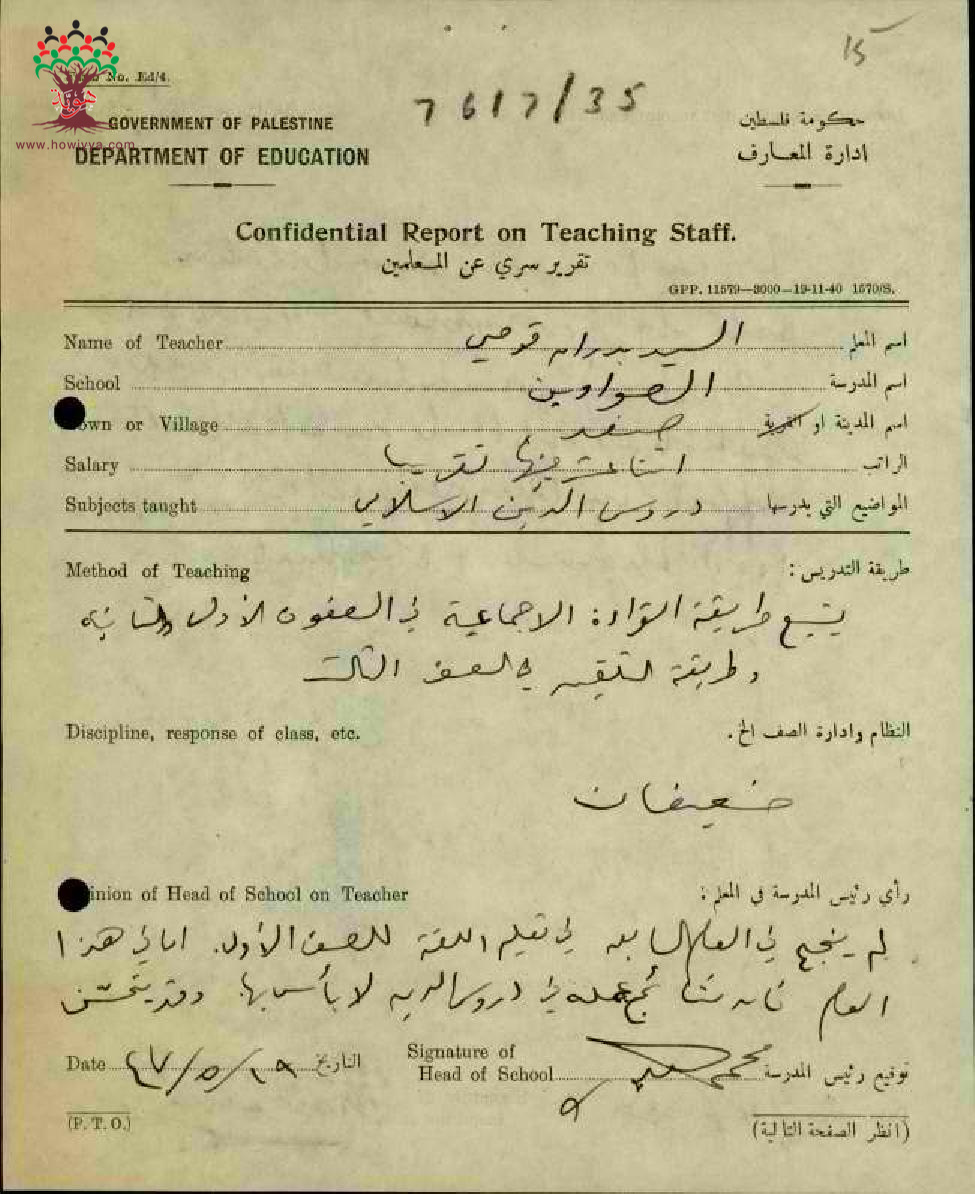 15
No. Ed/4.
7617/35
GOVERNMENT OF PALESTINE
حكومة فلسطين
www.howiyya.com
DEPARTMENT OF EDUCATION
ادارة المعارف
Confidential Report on Teaching Staff.
تقرير سري عن المعلمين
GPP. 11579—3000—19-11-40 1570/S.
Name of Teacher السيد بدران اسم المعلم
School الصواوين اسم المدرسة
own or Village صفد اسم المدينة او القرية
Salary اثنا عشر جنيها تقريبا الراتب
Subjects taught دروس الدين الاسلامي المواضيع التي يدرسها
Method of Teaching طريقة التدريس :
يتبع طريقة القراءة الاجماعية في الصفوف الأول والثانية
وطريقة التلقين في الصف الثالث
Discipline, response of class, etc. النظام وادارة الصف الخ.
ضعيفان
inion of Head of School on Teacher رأي رئيس المدرسة في المعلم :
لم ينجح في العام السابق في تعليم اللغة للصف الأول. اما في هذا
العام فان نتائج عمله في دروس الدين لا بأس بها. وقد يتحسن
Date ٤٧/٥/١٩ التاريخ Signature of Head of School توقيع رئيس المدرسة
(P. T. O.) (انظر الصفحة التالية)